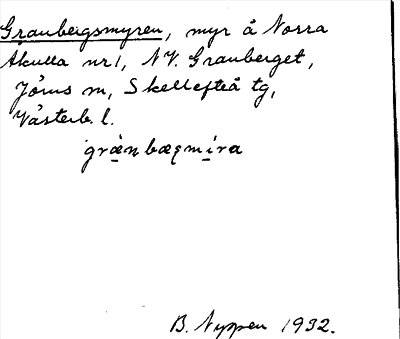 Granbergsmyren, myr å Norra
Åkulla nr 1, NV. Granberget,
Jörns sn, Skellefteå tg,
Västerb. l.
grànbæʂmìra
B. Nyssen 1932.